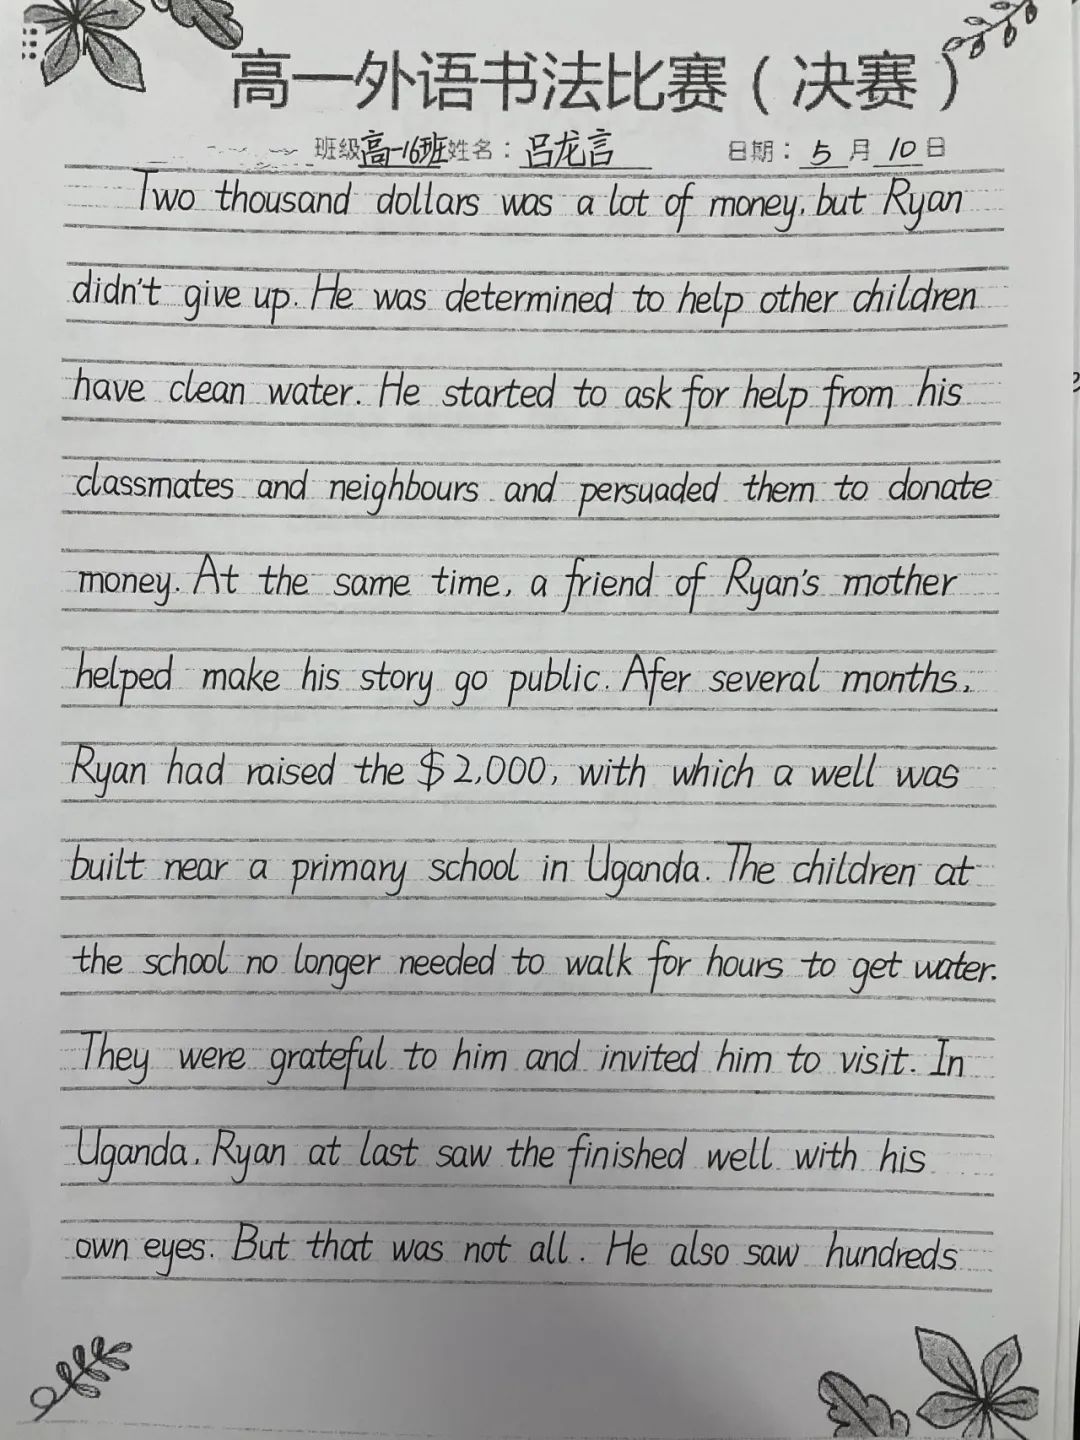 高一外语书法比赛（决赛）
班级高一16班姓名：吕龙言 日期：5月10日
Two thousand dollars was a lot of money, but Ryan
didn't give up. He was determined to help other children
have clean water. He started to ask for help from his
classmates and neighbours and persuaded them to donate
money. At the same time, a friend of Ryan's mother
helped make his story go public. Afer several months,
Ryan had raised the $2,000, with which a well was
built near a primary school in Uganda. The children at
the school no longer needed to walk for hours to get water.
They were grateful to him and invited him to visit. In
Uganda, Ryan at last saw the finished well with his
own eyes. But that was not all. He also saw hundreds